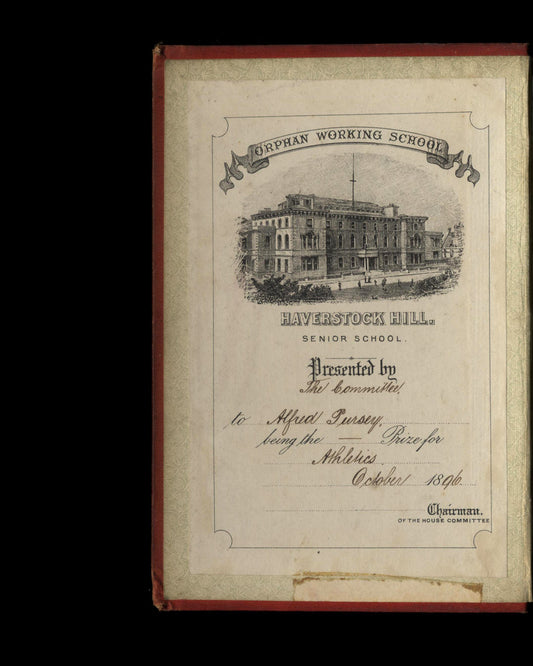 ORPHAN WORKING SCHOOL
HAVERSTOCK HILL.
SENIOR SCHOOL.
Presented by
The Committee.
to Alfred Pursey,
being the — Prize for
Athletics.
October 1896
Chairman.
OF THE HOUSE COMMITTEE